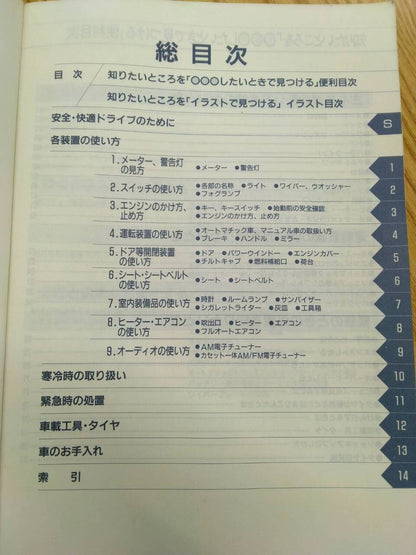 総目次
目 次 知りたいところを「〇〇〇したいときで見つける」便利目次
知りたいところを「イラストで見つける」イラスト目次
安全・快適ドライブのために S
各装置の使い方
1.メーター、警告灯の見方 ●メーター ●警告灯 1
2.スイッチの使い方 ●各部の名称 ●ライト ●ワイパー、ウオッシャー 2
●フォグランプ
3.エンジンのかけ方、止め方 ●キー、キースイッチ ●始動前の安全確認 3
●エンジンのかけ方、止め方
4.運転装置の使い方 ●オートマチック車、マニュアル車の取扱い方 4
●ブレーキ ●ハンドル ●ミラー
5.ドア等開閉装置の使い方 ●ドア ●パワーウインドー ●エンジンカバー 5
●チルトキャブ ●燃料補給口 ●荷台
6.シート・シートベルトの使い方 ●シート ●シートベルト 6
7.室内装備品の使い方 ●時計 ●ルームランプ ●サンバイザー 7
●シガレットライター ●灰皿 ●工具箱
8.ヒーター・エアコンの使い方 ●吹出口 ●ヒーター ●エアコン 8
●フルオートエアコン
9.オーディオの使い方 ●AM電子チューナー 9
●カセット一体AM/FM電子チューナー
寒冷時の取り扱い 10
緊急時の処置 11
車載工具・タイヤ 12
車のお手入れ 13
索 引 14